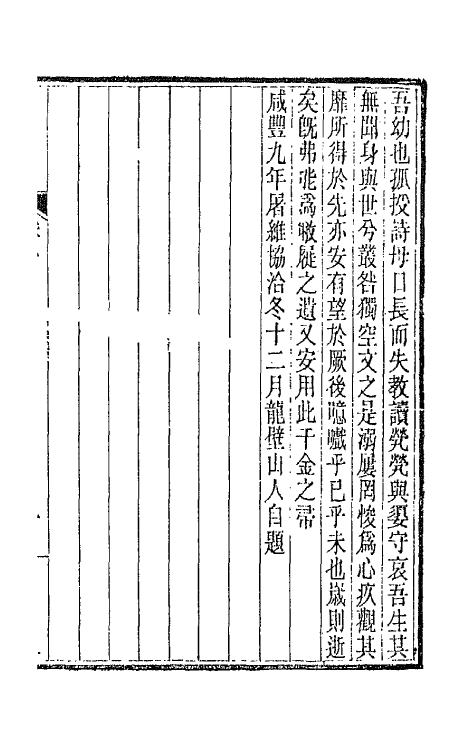 吾幼也孤投詩母口長而失教讀煢煢與嫛守哀吾生其
無聞身與世兮叢咎獨空文之是溺屢罔悛爲心疚觀其
靡所得於先亦安有望於厥後噫嚱乎已乎未也歲則逝
矣旣弗能爲敝屣之遺又安用此千金之帚
咸豐九年屠維協洽冬十二月龍壁山人自題